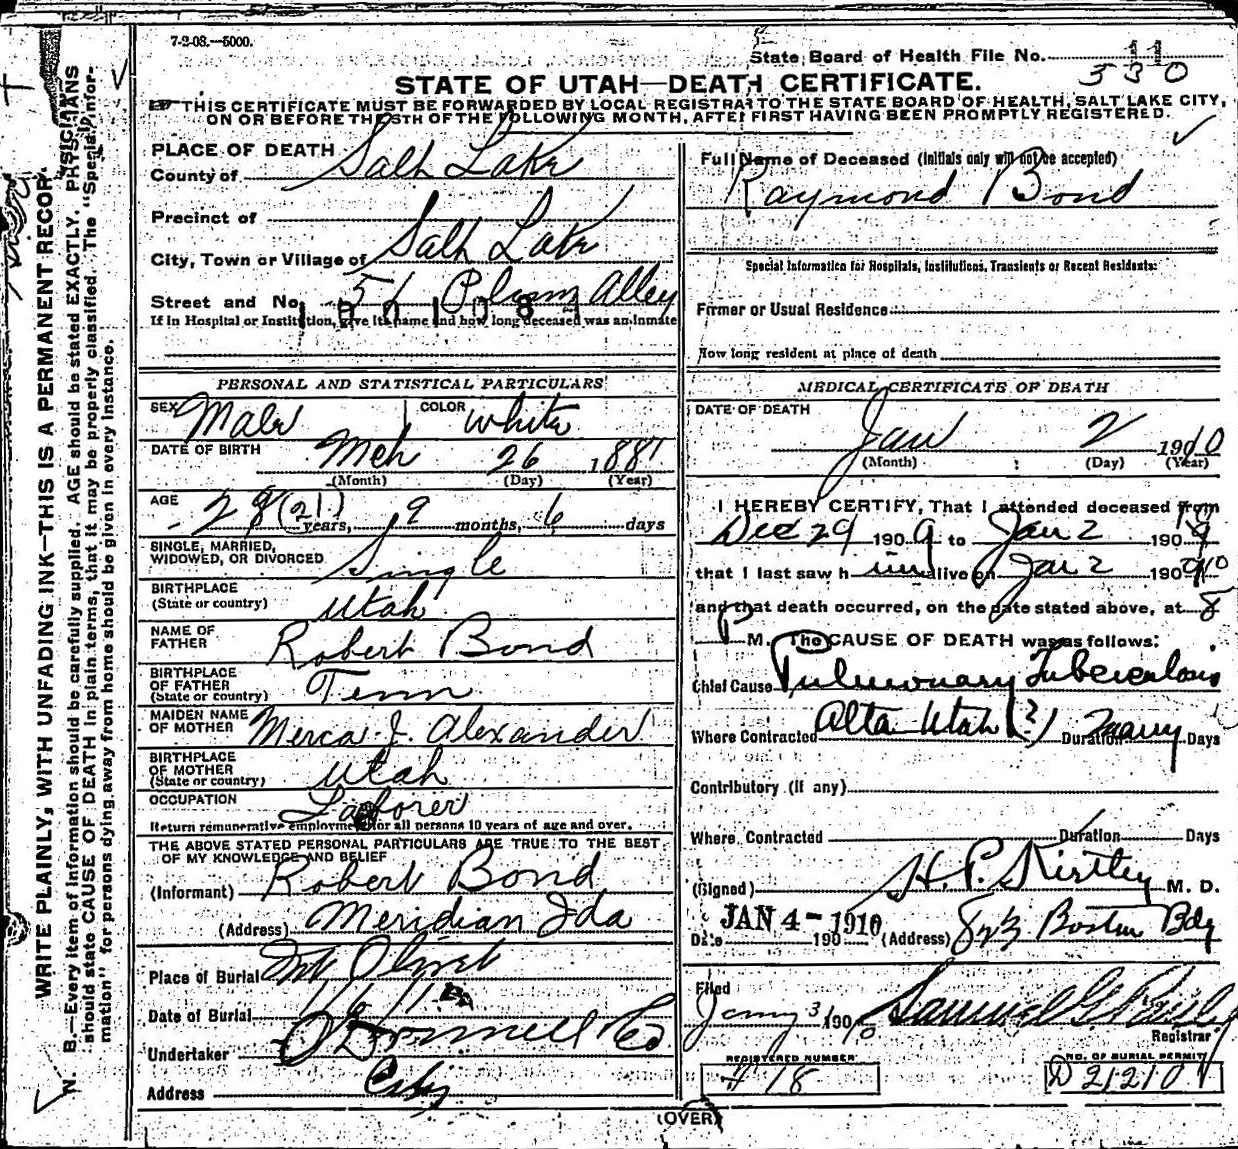 7-2-08.—5000.
State Board of Health File No. 11
530
STATE OF UTAH—DEATH CERTIFICATE.
THIS CERTIFICATE MUST BE FORWARDED BY LOCAL REGISTRAR TO THE STATE BOARD OF HEALTH, SALT LAKE CITY,
ON OR BEFORE THE 5TH OF THE FOLLOWING MONTH, AFTER FIRST HAVING BEEN PROMPTLY REGISTERED.
PLACE OF DEATH
County of Salt Lake
Precinct of
City, Town or Village of Salt Lake
Street and No. 51 Plum Alley
If in Hospital or Institution, give its name and how long deceased was an inmate
PERSONAL AND STATISTICAL PARTICULARS
SEX Male COLOR White
DATE OF BIRTH Mch 26 1881
(Month) (Day) (Year)
AGE 28 (21) years, 9 months, 6 days
SINGLE, MARRIED,
WIDOWED, OR DIVORCED Single
BIRTHPLACE
(State or country) Utah
NAME OF
FATHER Robert Bond
BIRTHPLACE
OF FATHER
(State or country) Tenn
MAIDEN NAME
OF MOTHER Merca J. Alexander
BIRTHPLACE
OF MOTHER
(State or country) Utah
OCCUPATION Laborer
Return remunerative employment for all persons 10 years of age and over.
THE ABOVE STATED PERSONAL PARTICULARS ARE TRUE TO THE BEST
OF MY KNOWLEDGE AND BELIEF
(Informant) Robert Bond
(Address) Meridian Ida
Place of Burial Mt Olivet
Date of Burial
Undertaker O'Donnell Co
Address City
Full Name of Deceased (Initials only will not be accepted)
Raymond Bond
Special Information for Hospitals, Institutions, Transients or Recent Residents:
Former or Usual Residence
How long resident at place of death
MEDICAL CERTIFICATE OF DEATH
DATE OF DEATH
Jan 2 1910
(Month) (Day) (Year)
I HEREBY CERTIFY, That I attended deceased from
Dec 29 1909 to Jan 2 190
that I last saw him alive on Jan 2 190
and that death occurred, on the date stated above, at 8
P M. The CAUSE OF DEATH was as follows:
Chief Cause Pulmonary Tuberculosis
Where Contracted Alta Utah (?) Duration Many Days
Contributory (if any)
Where Contracted Duration Days
(Signed) H. P. Kirtley M. D.
Date JAN 4 - 1910 190 (Address) Boston Bdg
Filed
Jany 3/ 190
Registrar
REGISTERED NUMBER
# 18
NO. OF BURIAL PERMIT
D 21210
(OVER)
WRITE PLAINLY, WITH UNFADING INK—THIS IS A PERMANENT RECORD.
N. B.—Every item of information should be carefully supplied. AGE should be stated EXACTLY. PHYSICIANS
should state CAUSE OF DEATH in plain terms, that it may be properly classified. The "Special Infor-
mation" for persons dying away from home should be given in every instance.